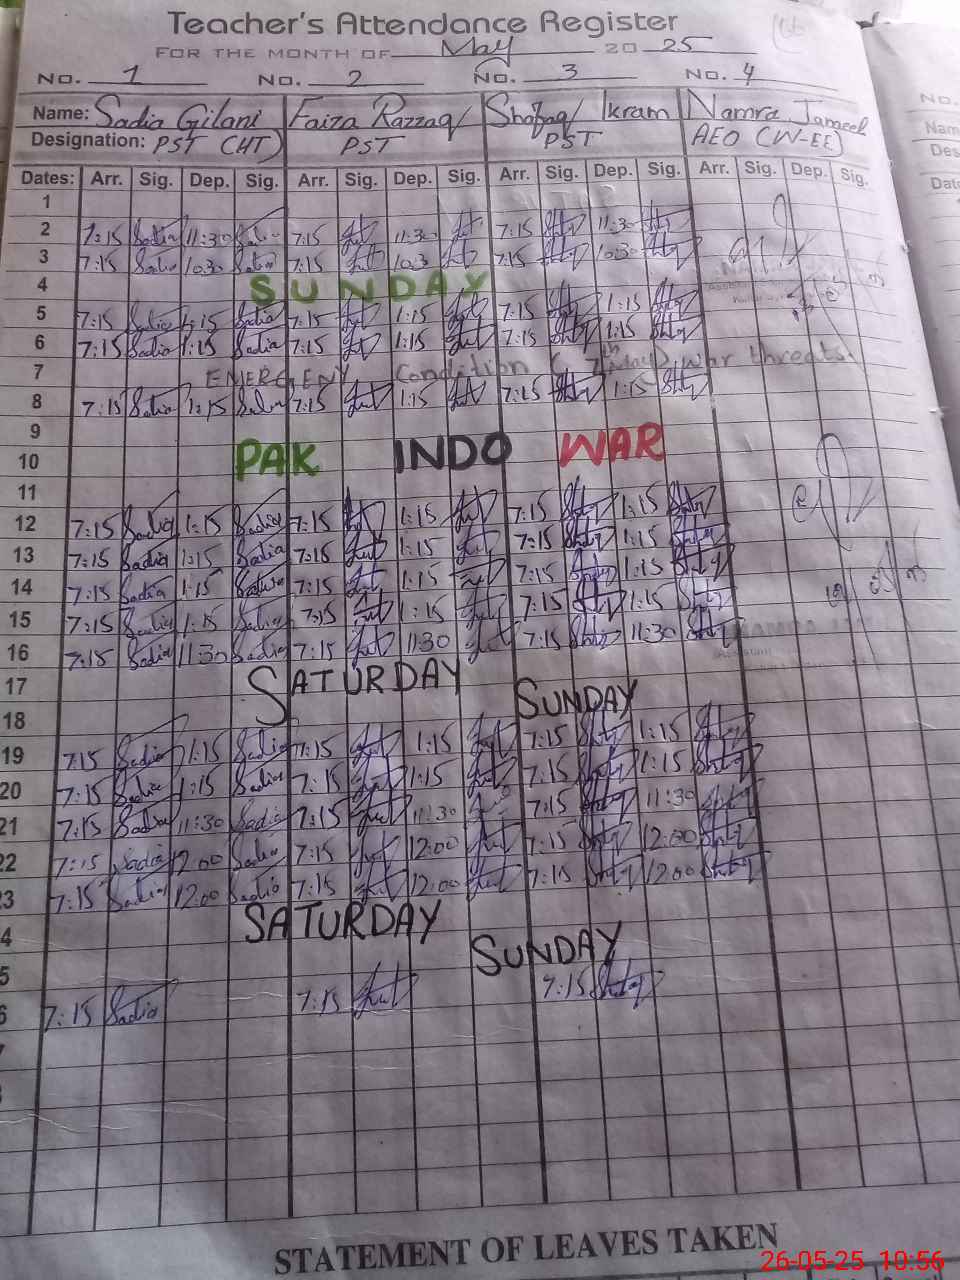 Teacher's Attendance Register
FOR THE MONTH OF May 20 25
No. 1 No. 2 No. 3 No. 4
Name: Sadia Gilani Faiza Razzaq Shafaq Ikram Namra Jameel
Designation: PST (HT) PST PST AEO (W-EE)
Dates: Arr. Sig. Dep. Sig. Arr. Sig. Dep. Sig. Arr. Sig. Dep. Sig. Arr. Sig. Dep. Sig.
1
2 7:15 Sadia 11:30 Sadia 7:15 11:30 7:15 11:30
3 7:15 Sadia 10:30 Sadia 7:15 10:3 7:15 10:30
4 SUNDAY
5 7:15 Sadia 1:15 Sadia 7:15 1:15 7:15 1:15
6 7:15 Sadia 1:15 Sadia 7:15 1:15 7:15 1:15
7 EMERGENY Condition (7th May) war threats.
8 7:15 Sadia 1:15 Sadia 7:15 1:15 7:15 1:15
9
10 PAK INDO WAR
11
12 7:15 Sadia 1:15 Sadia 7:15 1:15 7:15 1:15
13 7:15 Sadia 1:15 Sadia 7:15 1:15 7:15 1:15
14 7:15 Sadia 1:15 Sadia 7:15 1:15 7:15 1:15
15 7:15 Sadia 1:15 Sadia 7:15 1:15 7:15 1:15
16 7:15 Sadia 11:30 Sadia 7:15 11:30 7:15 11:30
17 SATURDAY SUNDAY
18
19 7:15 Sadia 1:15 Sadia 7:15 1:15 7:15 1:15
20 7:15 Sadia 1:15 Sadia 7:15 1:15 7:15 1:15
21 7:15 Sadia 11:30 Sadia 7:15 11:30 7:15 11:30
22 7:15 Sadia 12:00 Sadia 7:15 12:00 7:15 12:00
3 7:15 Sadia 12:00 Sadia 7:15 12:00 7:15 12:00
4 SATURDAY SUNDAY
5
6 7:15 Sadia 7:15 7:15
STATEMENT OF LEAVES TAKEN
26-05-25 10:56